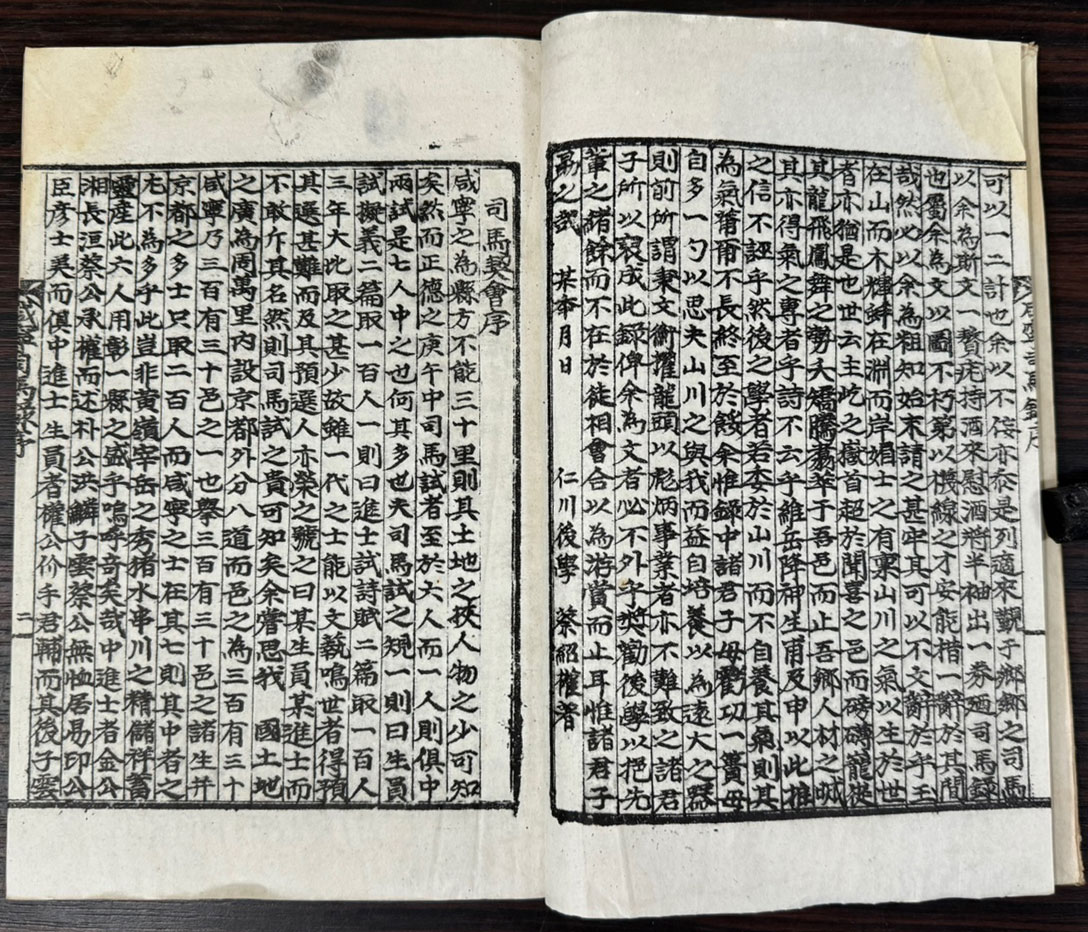 可以一二計也余以不佞亦忝是列適來覲于鄉鄉之司馬
以余為斯文一贅疣持酒來慰酒將半袖出一券廼司馬錄
也屬余為文以圖不朽第以機線之才安能楷一辭於其間
哉然必以余為粗知始末請之甚牢其可以不文辭於乎玉
在山而木輝蚌在淵而岸媚士之有稟山川之氣以生於世
者亦猶是也世云主屹之嶽首起於聞喜之邑而磅礴龍從
其龍飛鳳舞之勢夭矯騰蕩萃于吾邑而止吾鄉人材之
其亦得氣之專者乎詩不云乎維岳降神生甫及申以此推
之信不誣乎然後之學者若委於山川而不自養其氣則其
為氣薾薾不長終至於餒余惟錄中諸君子毋虧功一簣毋
自多一勺以思夫山川之與我而益自培養以為遠大之器
則前所謂秉文衡擢龍頭以彪炳事業者亦不難致之諸君
子所以裒成此錄俾余為文者必不外乎獎勸後學以挹先
輩之緖餘而不在於徒相會合以為游賞而止耳惟諸君子
勗之哉 某年月日 仁川後學 蔡紹權著
咸寧司馬錄序
司馬契會序
咸寧之為縣方不能三十里則其土地之挾人物之少可知
矣然而正德之庚午中司馬試者至於六人而一人則俱中
兩試是七人中之也何其多也夫司馬試之規一則曰生員
試擬義二篇取一百人一則曰進士試詩賦二篇取一百人
三年大比取之甚少故雖一代之士能以文藝鳴世者得預
其選甚難而及其預選人亦榮之號之曰某生員某進士而
不敢斥其名然則司馬試之貴可知矣余嘗思我 國土地
之廣為周萬里內設京都外分八道而邑之為三百有三十
咸寧乃三百有三十邑之一也擧三百有三十邑之諸生幷
京都之多士只取二百人而咸寧之士在其七則其中者之
尤不為多乎此豈非黃嶺宰岳之秀猪水串川之精儲祥蓄
靈產此六人用彰一縣之盛乎嗚呼奇矣哉中進士者金公
湘長洹蔡公承權而述朴公洪鱗子雲蔡公無恤居易印公
臣彥士美而俱中進士生員者權公价手君輔而其後子雲
咸寧司馬錄序 二